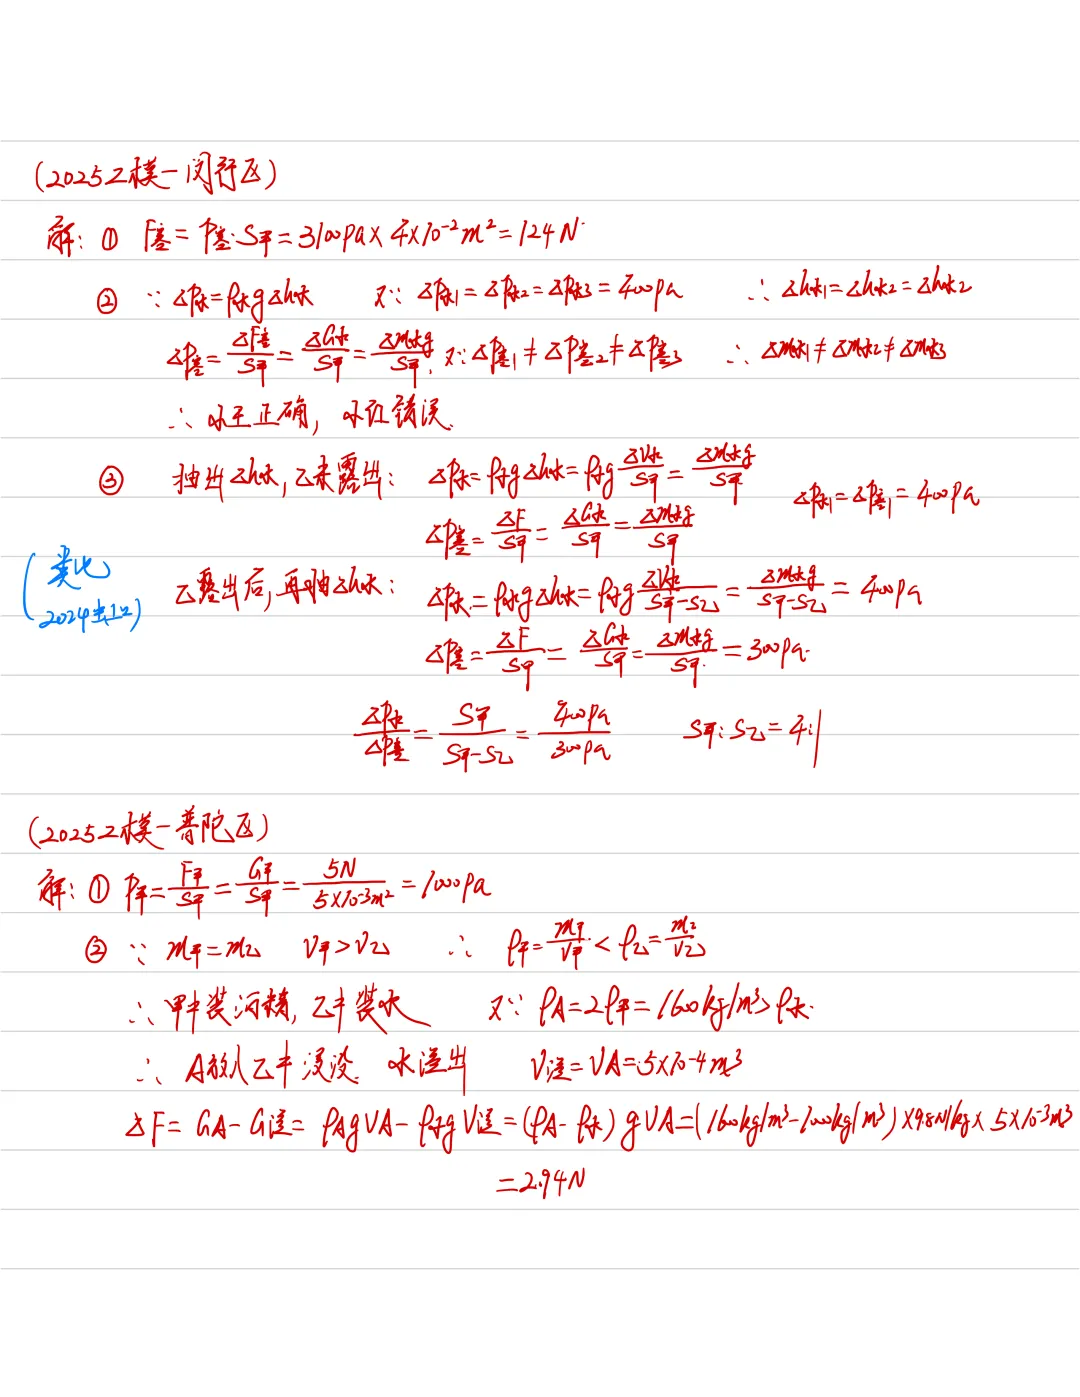 (2025二模-闵行区)
解: ① F容 = P容·S甲 = 3100Pa × 4×10⁻²m² = 124N
② ∵ ΔP水=ρ水gΔh水 又∵ ΔP水1=ΔP水2=ΔP水3=400Pa ∴ Δh水1=Δh水2=Δh水2
ΔP容 = ΔF容/S甲 = ΔG水/S甲 = Δm水g/S甲 又∵ ΔP容1 ≠ ΔP容2 ≠ ΔP容3 ∴ Δm水1 ≠ Δm水2 ≠ Δm水3
∴ 小王正确, 小红错误.
③ 抽出Δh水, 乙未露出: ΔP水=ρ水gΔh水=ρ水g ΔV水/S甲 = Δm水g/S甲
ΔP水1=ΔP容1=400Pa
ΔP容 = ΔF/S甲 = ΔG水/S甲 = Δm水g/S甲
(类比
2024
乙露出后, 再抽Δh水: ΔP水=ρ水gΔh水=ρ水g ΔV水/(S甲-S乙) = Δm水g/(S甲-S乙) = 400Pa
ΔP容 = ΔF/S甲 = ΔG水/S甲 = Δm水g/S甲 = 300Pa.
ΔP水/ΔP容 = S甲/(S甲-S乙) = 400Pa/300Pa S甲:S乙=4:1
(2025二模-普陀区)
解: ① P甲 = F甲/S甲 = G甲/S甲 = 5N/5×10⁻³m² = 1000Pa
② ∵ m甲=m乙 V甲>V乙 ∴ ρ甲 = m甲/V甲 < ρ乙 = m乙/V乙
∴ 甲中装酒精, 乙中装水 又∵ ρA=2ρ甲=1600kg/m³>ρ水.
∴ A放入乙中浸没. 水溢出 V溢=VA=5×10⁻⁴m³
ΔF = GA-G溢 = ρAgVA-ρ水gV溢 = (ρA-ρ水)gVA = (1600kg/m³-1000kg/m³)×9.8N/kg×5×10⁻³m³
=2.94N